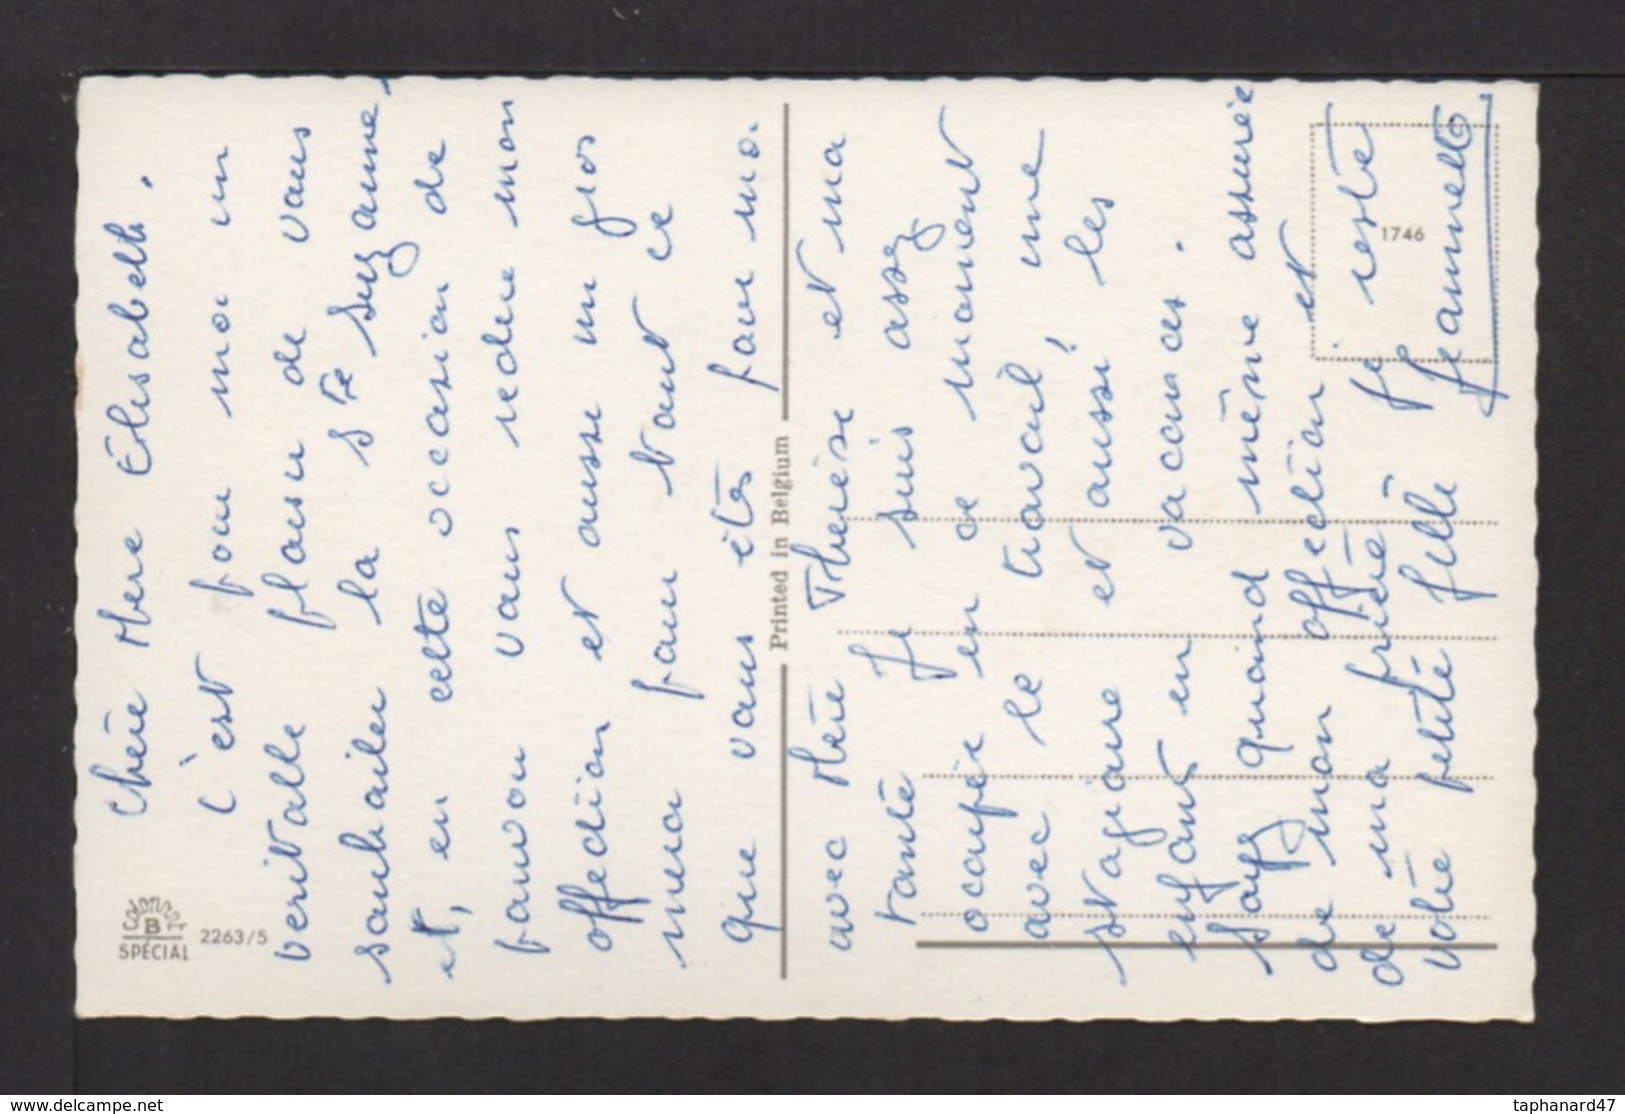 Chère Mère Élisabeth.
C'est pour moi un
veritable plaisir de vous
souhaiter la Ste Suzanne,
et, en cette occasion de
pouvoir vous redire mon
affection et aussi un gros
merci pour tout ce
que vous êtes pour moi
avec Mère Thérèse et ma
tante Je suis assez
occupée en ce moment
avec le travail, une
stagiaire et aussi les
enfants en vacances.
Soyez quand même assurée
de mon affection et
de ma prière je reste
votre petite fille Jeannette
Printed in Belgium
1746
colorprint
B
SPECIAL
2263/5
www.delcampe.net
taphanard47